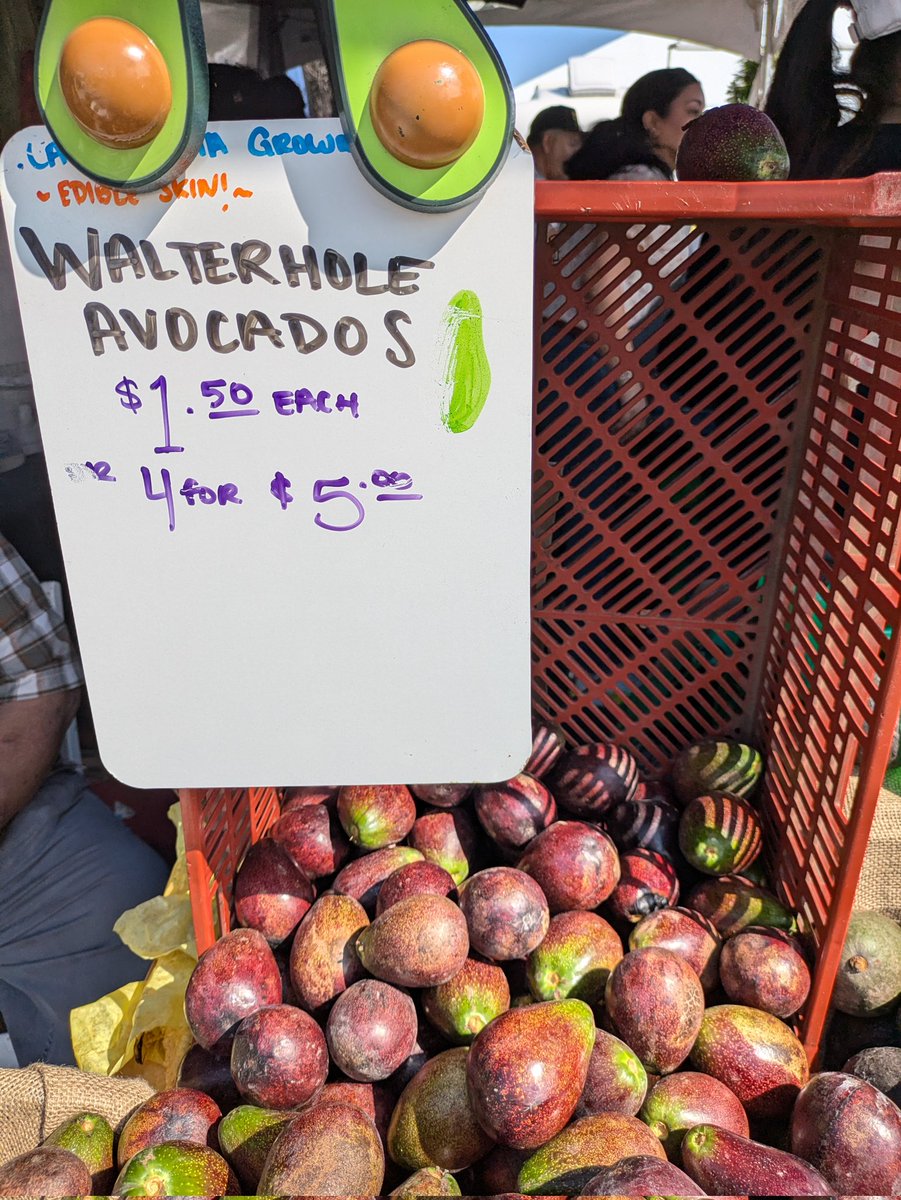 GROWN
~EDIBLE SKIN!~
WALTERHOLE
AVOCADOS
$1.50 EACH
4 FOR $5.00